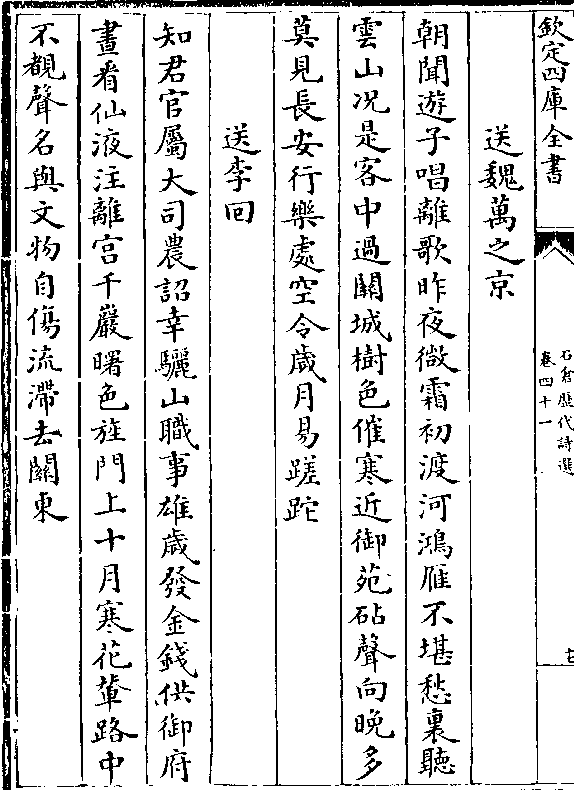 欽定四庫全書
石倉歷代詩選
卷四十一
十七
送魏萬之京
朝聞遊子唱離歌昨夜微霜初渡河鴻雁不堪愁裏聽
雲山况是客中過關城樹色催寒近御苑砧聲向晚多
莫見長安行樂處空令歲月易蹉跎
送李回
知君官屬大司農詔幸驪山職事雄歲發金錢供御府
晝看仙液注離宮千巖曙色旌門上十月寒花輦路中
不覩聲名與文物自傷流滯去關東